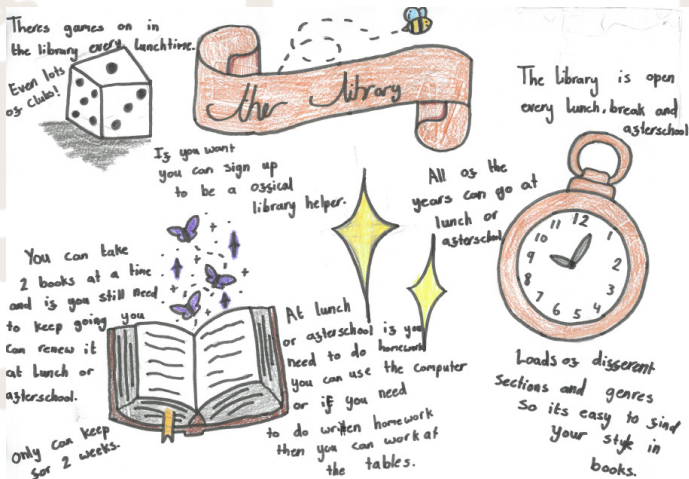 Theres games on in
the library every lunchtime.
Even lots
of clubs!
The library
The library is open
every lunch, break and
afterschool
If you want
you can sign up
to be a offical
library helper.
All of the
years can go at
lunch or
afterschool
12
1
2
3
4
5
6
7
8
9
10
11
You can take
2 books at a time
and if you still need
to keep going you
can renew it
at lunch or
afterschool.
Only can keep
for 2 weeks.
At lunch
or afterschool if you
need to do homework
you can use the computer
or if you need
to do written homework
then you can work at
the tables.
Loads of different
sections and genres
so its easy to find
your style in
books.